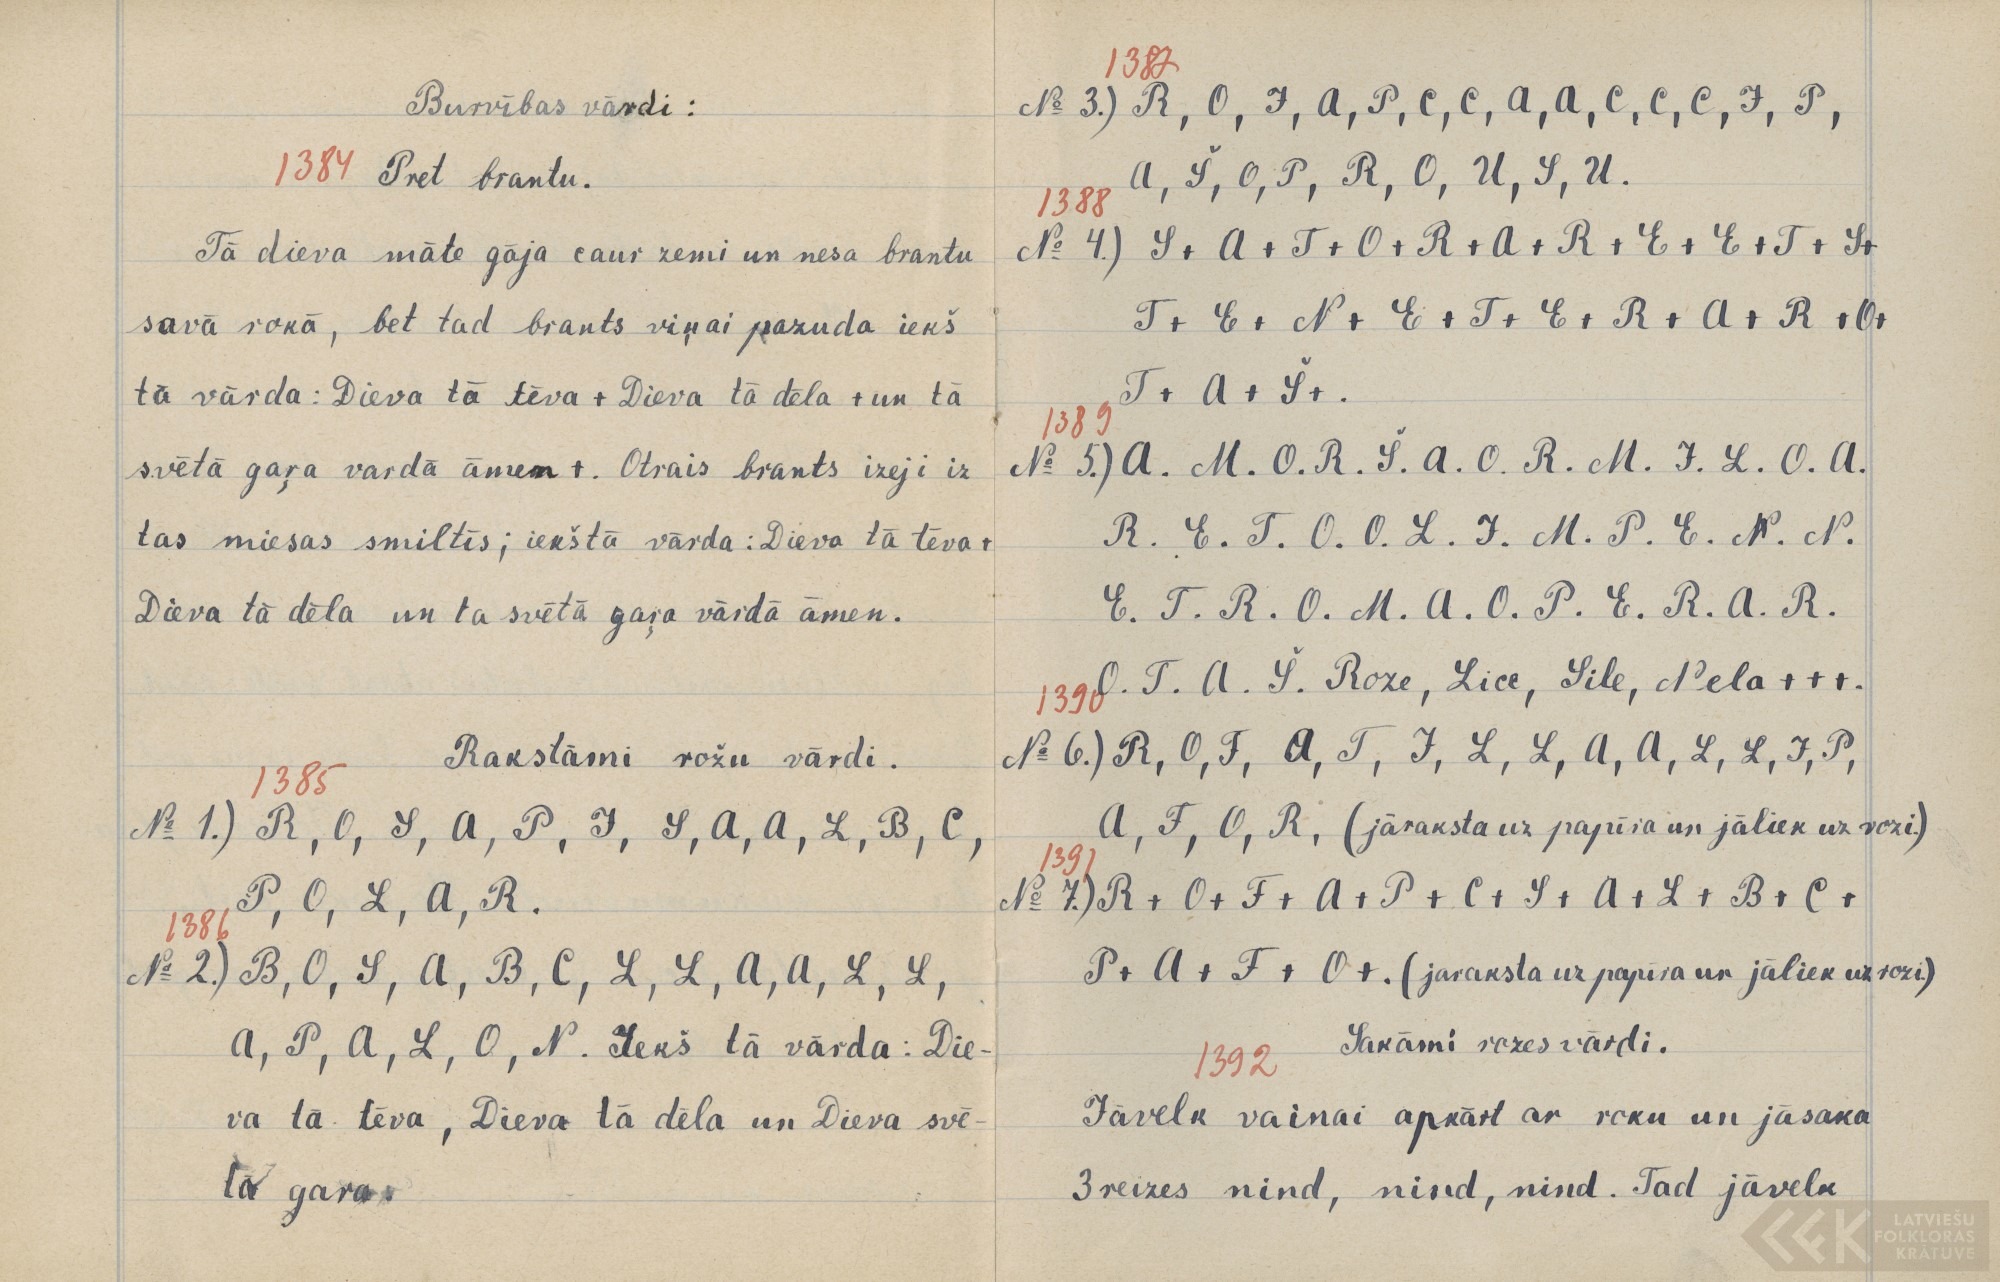 Burvības vārdi:
1384 Pret brantu.
Tā dieva māte gāja caur zemi un nesa brantu
savā rokā, bet tad brants viņai pazuda iekš
tā vārda: Dieva tā tēva + Dieva tā dēla + un tā
svētā gaŗa vardā āmen +. Otrais brants izeji iz
tas miesas smiltīs; iekštā vārda: Dieva tā tēva +
Dieva tā dēla un ta svētā gaŗa vārdā āmen.
Rakstāmi rožu vārdi.
1385
№ 1.) R, O, S, A, P, I, S, A, A, L, B, C,
P, O, L, A, R.
1386
№ 2.) B, O, S, A, B, C, L, L, A, A, L, L,
A, P, A, L, O, N. Iekš tā vārda: Die-
va tā tēva, Dieva tā dēla un Dieva svē-
tā gara.
1387
№ 3.) R, O, I, A, P, C, C, A, A, C, C, C, I, P,
A, Š, O, P, R, O, U, S, U.
1388
№ 4.) S + A + T + O + R + A + R + E + E + T + S +
T + E + N + E + T + E + R + A + R + O +
T + A + Š + .
1389
№ 5.) A. M. O. R. Š. A. O. R. M. I. L. O. A.
R. E. T. O. O. L. I. M. P. E. N. N.
E. T. R. O. M. A. O. P. E. R. A. R.
O. T. A. Š. Roze, Lice, Sile, Nela + + +.
1390
№ 6.) R, O, F, A, T, I, L, L, A, A, L, L, I, P,
A, F, O, R, (jāraksta uz papīra un jāliek uz rozi.)
1391
№ 7.) R + O + F + A + P + C + S + A + L + B + C +
P + A + F + O +. (jaraksta uz papīra un jāliek uz rozi.)
Sakāmi rozes vārdi.
1392
Jāvelk vainai apkārt ar roku un jāsaka
3 reizes nind, nind, nind. Tad jāvelk
LATVIEŠU
FOLKLORAS
KRĀTUVE